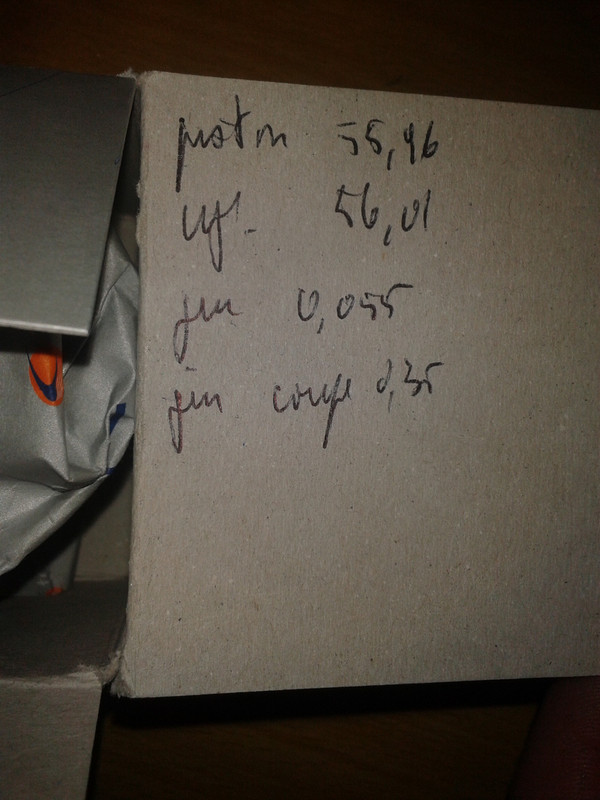 piston 55,96
cyl. 56,01
jeu 0,055
jeu coupe 0,35